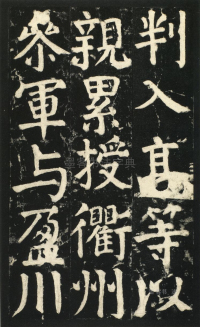 判入高等以
親累授衢州
叅軍与盈川